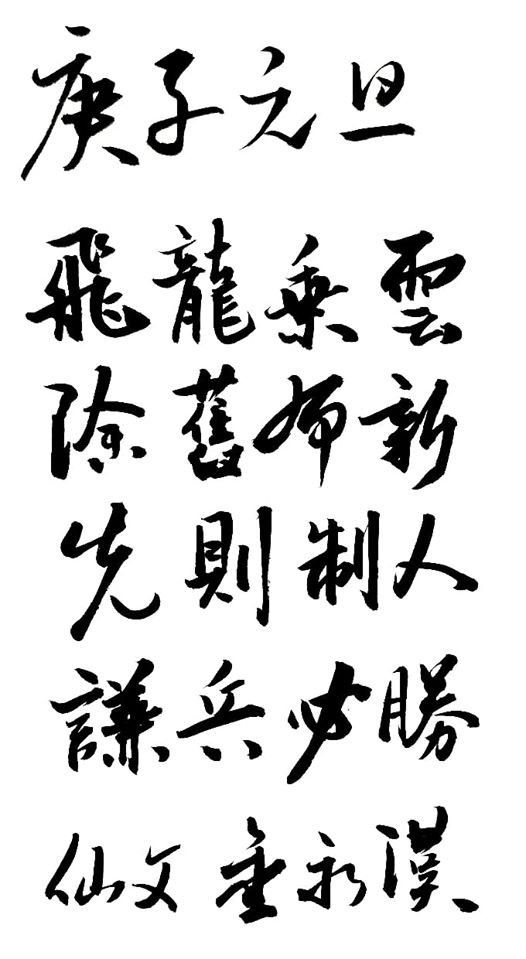 庚子元旦
飛龍乗雲
除舊布新
先則制人
謙兵必勝
仙文金永漢